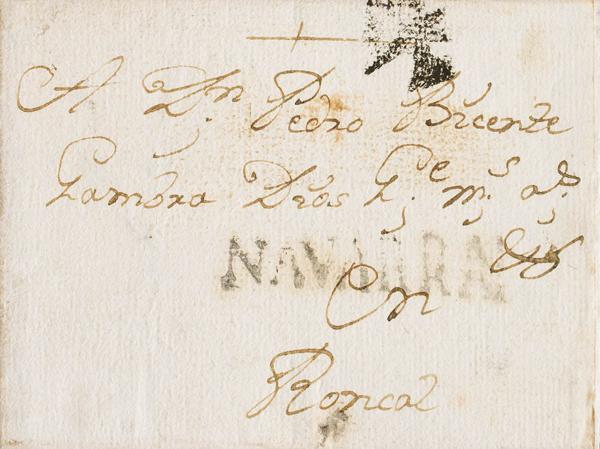 A Dn Pedro Bicente
Gambra Dios Ge ms as
NAVARRA
En
Roncal